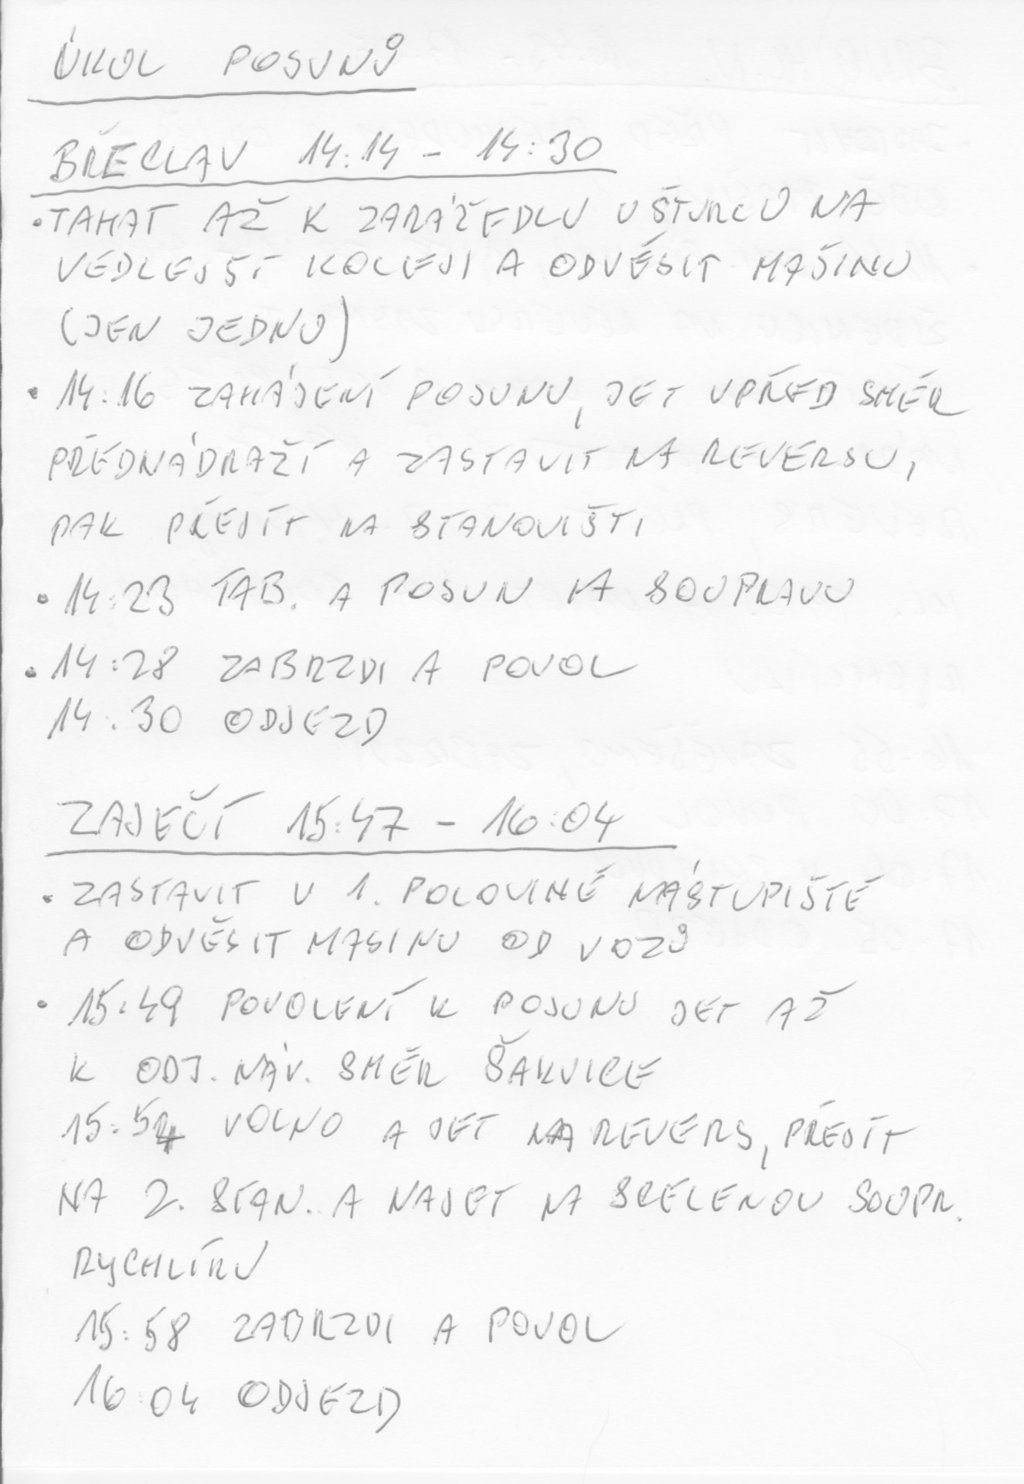 ÚKOL POSUNŮ
BŘECLAV 14:14 - 14:30
• TAHAT AŽ K ZARÁŽEDLU U ŠTURCU NA
VEDLEJŠÍ KOLEJI A ODVĚSIT MAŠINU
(JEN JEDNU)
• 14:16 ZAHÁJENÍ POSUNU, JET VPŘED SMĚR
PŘEDNÁDRAŽÍ A ZASTAVIT NA REVERSU,
PAK PŘEJÍT NA STANOVIŠTI
• 14:23 TAB. A POSUN NA SOUPRAVU
• 14:28 ZABRZDI A POVOL
14:30 ODJEZD
ZAJEČÍ 15:47 - 16:04
• ZASTAVIT V 1. POLOVINĚ NÁSTUPIŠTĚ
A ODVĚSIT MASINU OD VOZŮ
• 15:49 POVOLENÍ K POSUNU JET AŽ
K ODJ. NÁV. SMĚR ŠAKVICE
15:54 VOLNO A JET NA REVERS, PŘEJÍT
NA 2. STAN. A NAJET NA SOUPR.
RYCHLÍKU
15:58 ZABRZDI A POVOL
16:04 ODJEZD